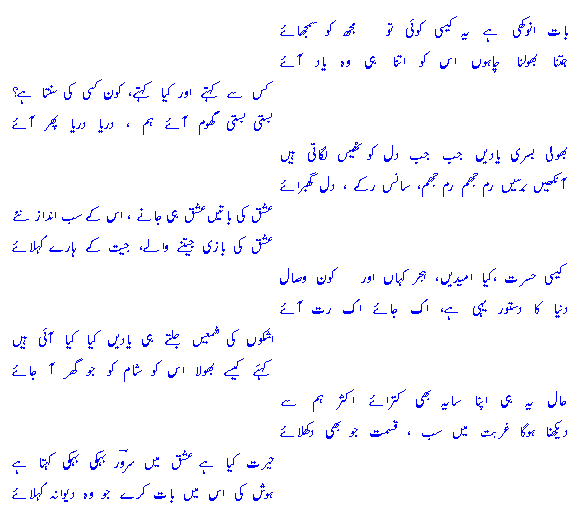 بات انوکھی ہے یہ کیسی کوئی تو مجھ کو سمجھائے
جتنا بھولنا چاہوں اس کو اتنا ہی وہ یاد آئے
کس سے کہتے اور کیا کہتے، کون کسی کی سنتا ہے؟
بستی بستی گھوم آئے ہم ، دریا دریا پھر آئے
بھولی بسری یادیں جب جب دل کو ٹھیس لگاتی ہیں
آنکھیں برسیں رم جھم رم جھم، سانس رکے ، دل گھبرائے
عشق کی باتیں عشق ہی جانے ، اس کے سب انداز نئے
عشق کی بازی جیتنے والے، جیت کے ہارے کہلائے
کیسی حسرت ،کیا امیدیں، ہجر کہاں اور کون وصال
دنیا کا دستور یہی ہے، اک جائے اک رت آئے
اشکوں کی شمعیں جلتے ہی یادیں کیا کیا آئی ہیں
کہئے کیسے بھولا اس کو شام کو جو گھر آ جائے
حال یہ ہی اپنا سایہ بھی کترائے اکثر ہم سے
دیکھنا ہوگا غربت میں سب ، قسمت جو بھی دکھلائے
حیرت کیا ہے عشق میں سرور بہکی بہکی کہتا ہے
ہوش کی اس میں بات کرے جو وہ دیوانہ کہلائے